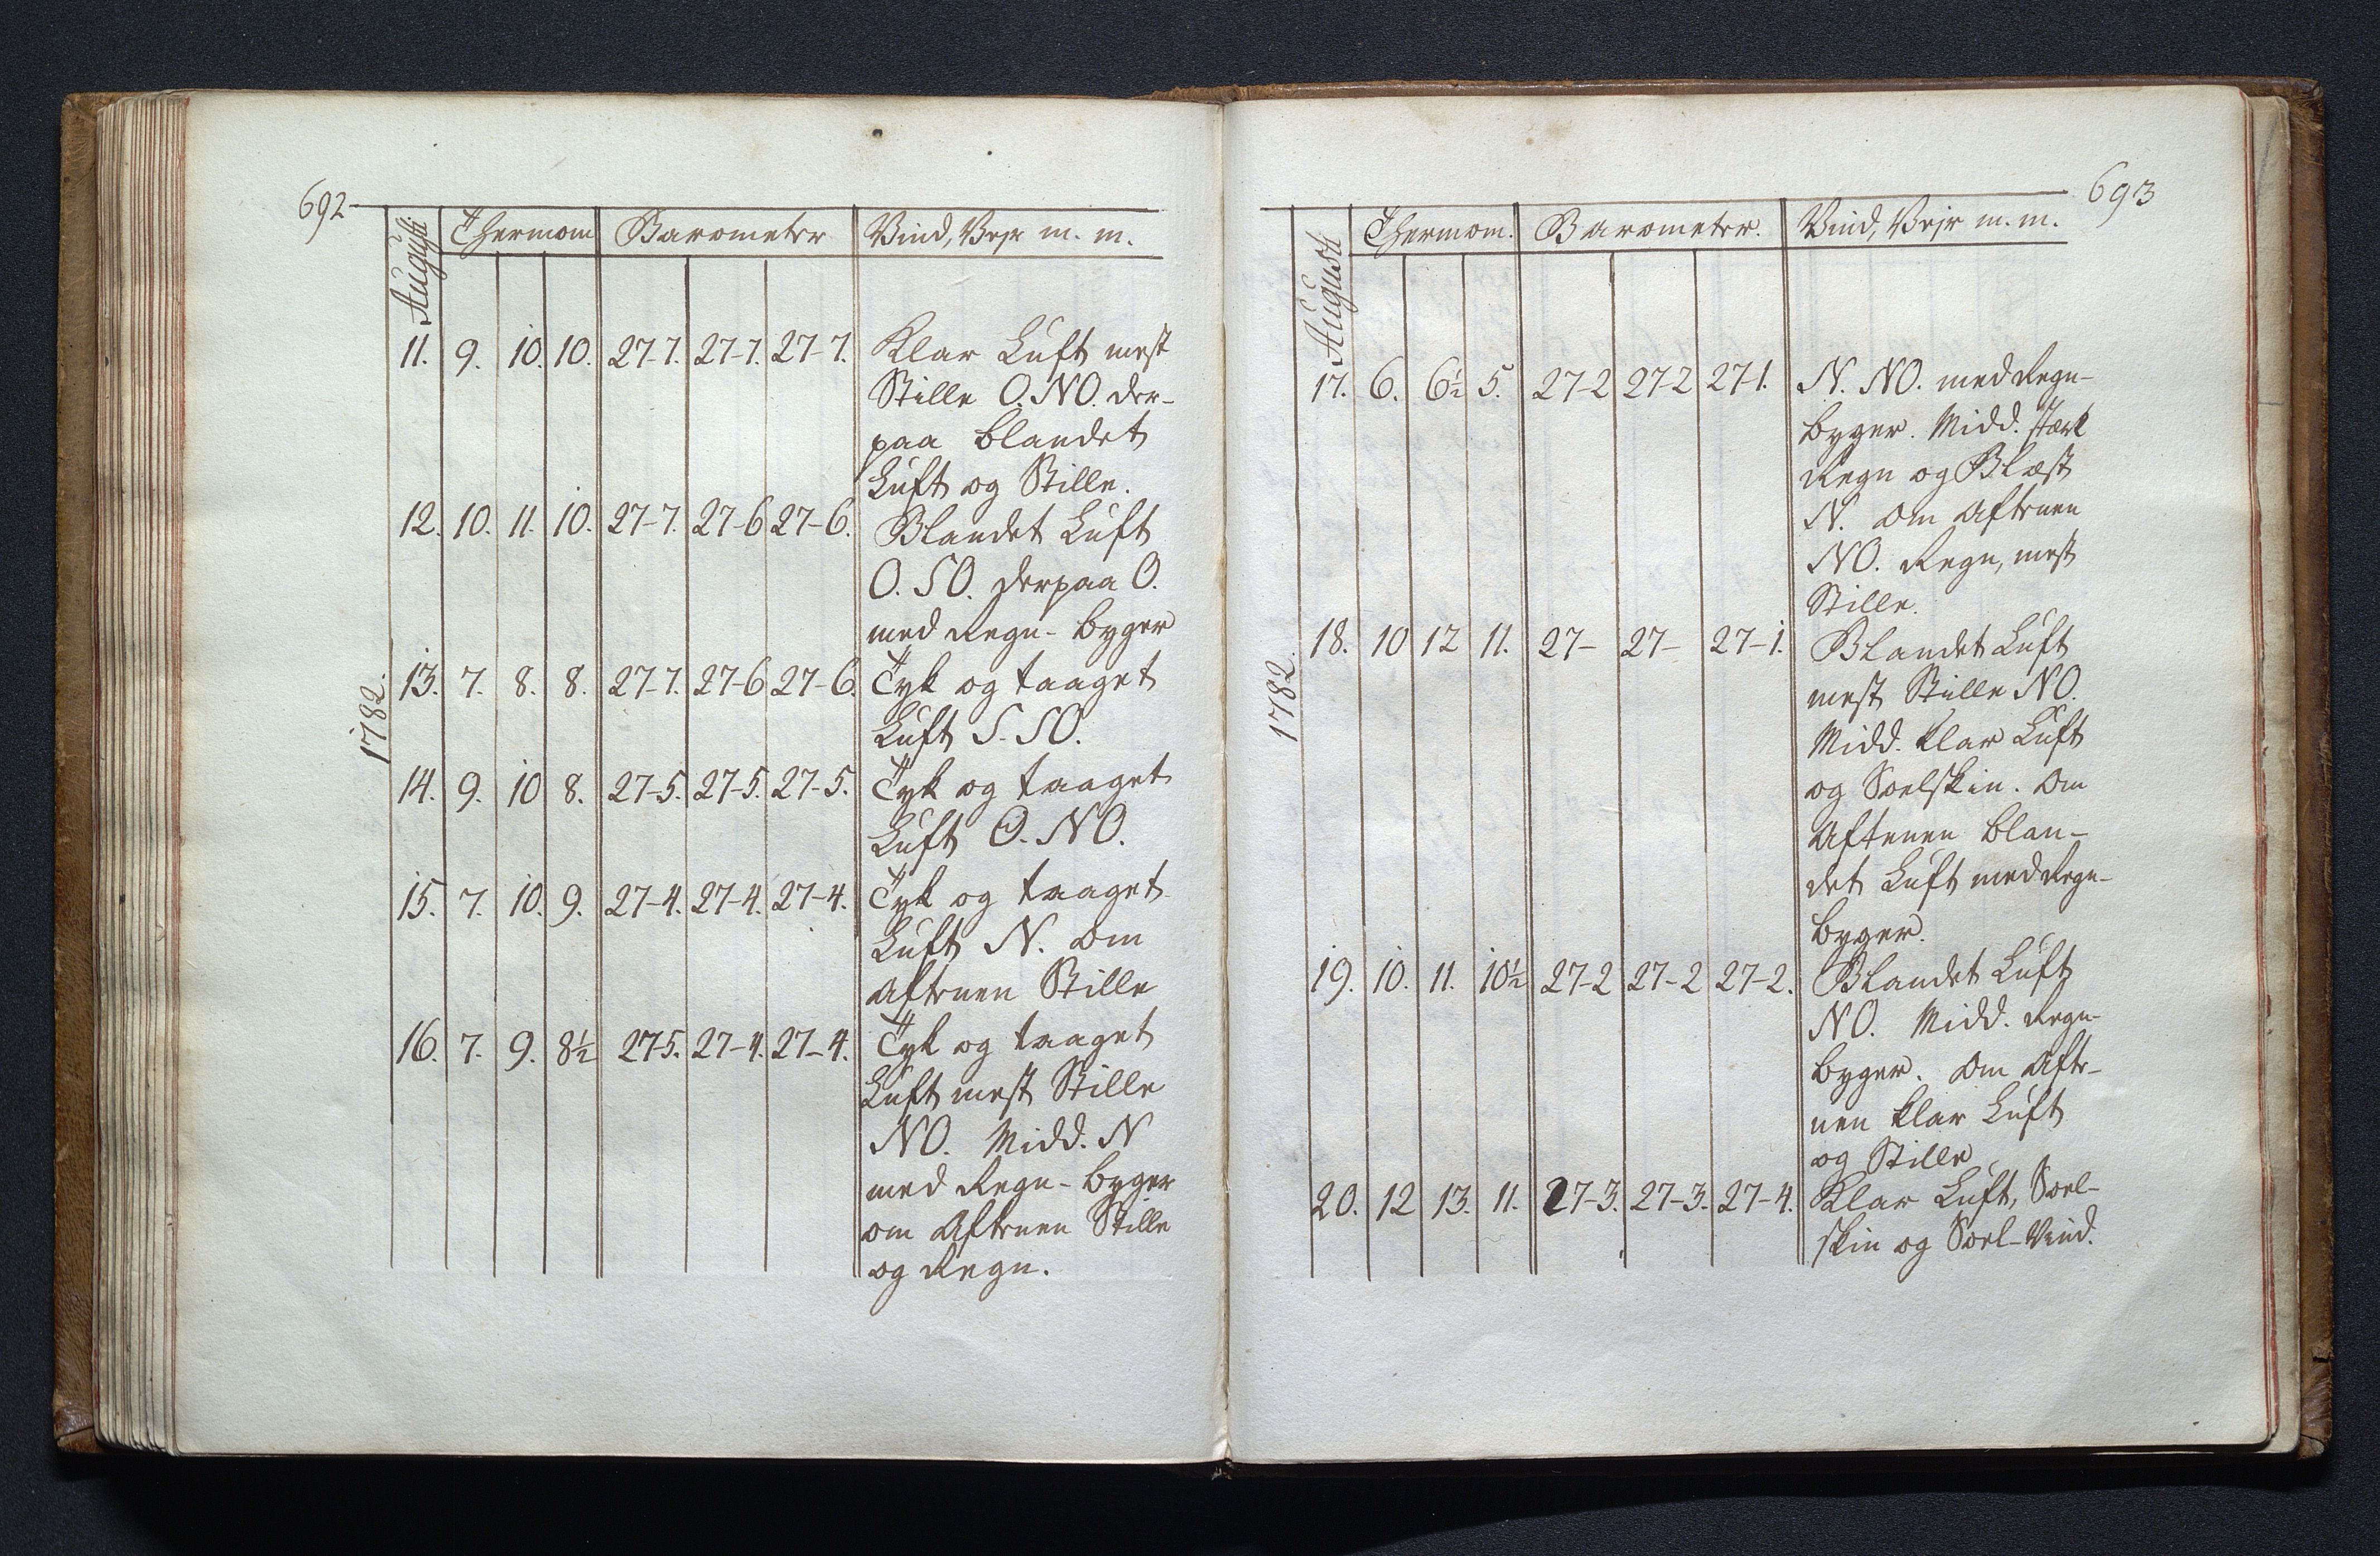 692
Augusti Thermom Barometer Vind, Vejr m. m.
11. 9. 10. 10. 27-7. 27-7. 27-7. Klar Luft mest
Stille O. NO. der-
paa blandet
Luft og Stille.
12. 10. 11. 10. 27-7. 27-6 27-6. Blandet Luft
O. SO. derpaa O.
med Regn-byger
1782.
13. 7. 8. 8. 27-7. 27-6 27-6. Tyk og taaget
Luft S. SO.
14. 9. 10 8. 27-5. 27-5. 27-5. Tyk og taaget
Luft O. NO.
15. 7. 10. 9. 27-4. 27-4. 27-4. Tyk og taaget
Luft N. Om
Aftenen Stille
16. 7. 9. 8½ 27-5. 27-4. 27-4. Tyk og taaget
Luft mest Stille
NO. Midd. N
med Regn-byger
om Aftenen Stille
og Regn.
693
Augusti Thermom. Barometer. Vind, Vejr m. m.
17. 6. 6½ 5. 27-2 27-2 27-1. N. NO. med Regn-
byger. Midd. stærk
Regn og Blæst
N. Om Aftenen
NO. Regn, mest
Stille.
1782
18. 10 12 11. 27- 27- 27-1. Blandet Luft
mest Stille NO.
Midd. klar Luft
og Soelskin. Om
Aftenen blan-
det Luft med Regn-
byger.
19. 10. 11. 10½ 27-2 27-2 27-2. Blandet Luft
NO. Midd. Regn-
byger. Om Afte-
nen klar Luft
og Stille
20. 12 13. 11. 27-3. 27-3. 27-4. Klar Luft, Soel-
skin og Soel-Vind.